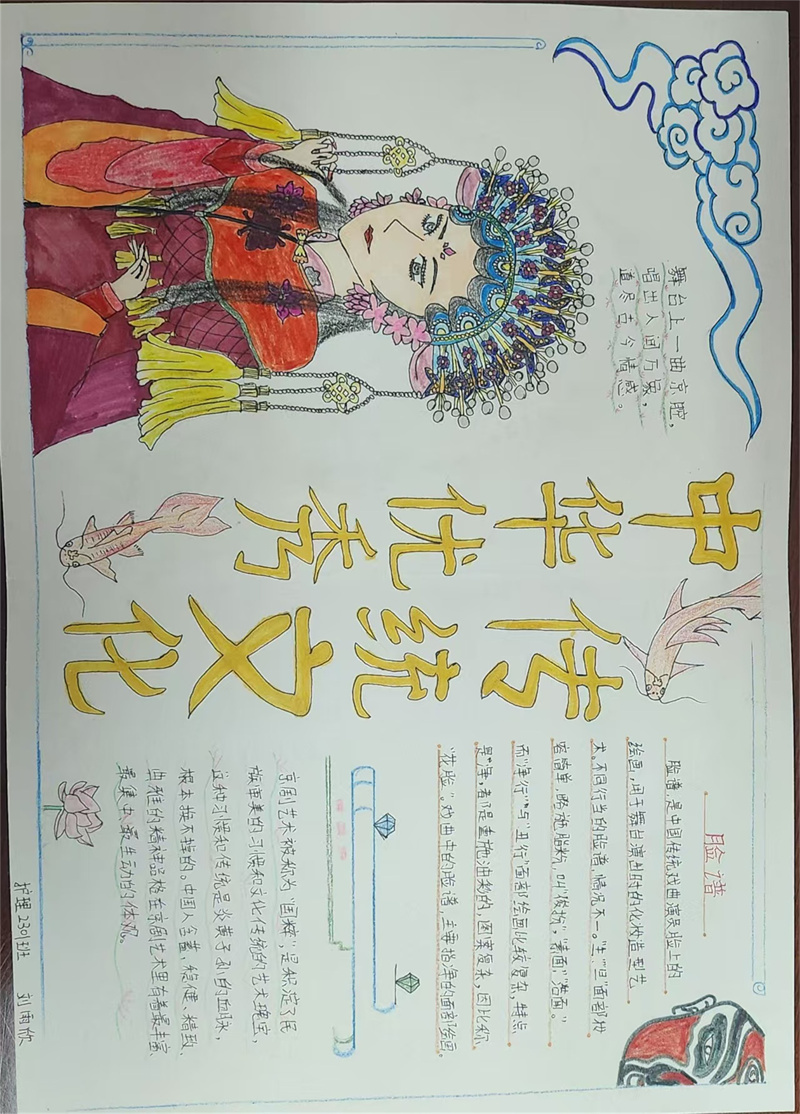 舞台上一曲京腔，
唱出人间万象，
道尽古今情感。
中华优秀
传统文化
脸谱
脸谱，是中国传统戏曲演员脸上的
绘画，用于舞台演出时的化妆造型艺
术。不同行当的脸谱，情况不一。"生""旦"面部妆
容简单，略施脂粉，叫"俊扮"，"素面"，"洁面。"
而"净行"与"丑行"面部绘画比较复杂，特点
是"净，都是重施油彩的，图案复杂，因此称
"花脸"。戏曲中的脸谱，主要指净的面部绘画。
京剧艺术被称为"国粹"，是积淀了民
族审美的习惯和文化传统的艺术瑰宝，
这种习惯和传统是炎黄子孙的血脉，
根本换不掉的。中国人含蓄、稳健、精致、
典雅的精神品格在京剧艺术里有着最丰富、
最集中、最生动的体现。
护理2301班 刘雨欣